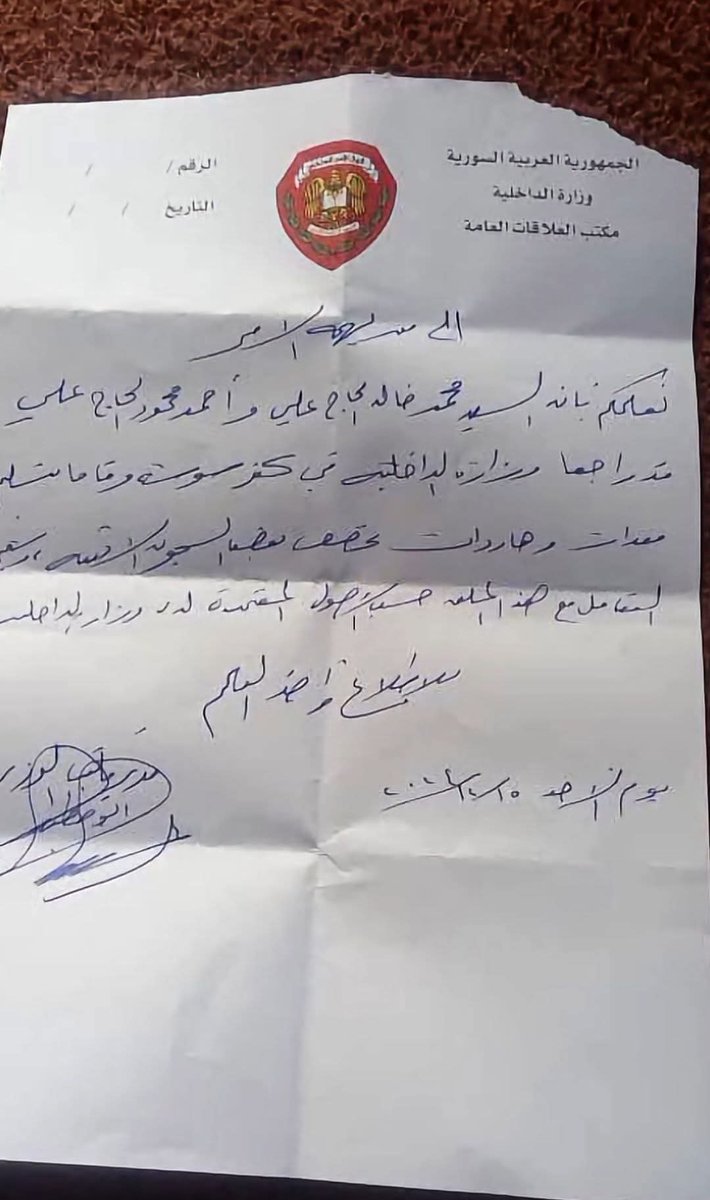 الجمهورية العربية السورية
وزارة الداخلية
مكتب العلاقات العامة
الرقم / /
التاريخ / /
الى من يهمه الامر
نعلمكم بان السيد محمد خالد الحاج علي و أحمد محمود الحاج علي
قد راجعا وزارة الداخلية في كفرسوسة وقاما بتسليم
معدات و هاردات تخص بعض السجون
التعامل مع هذا الملف حسب الأصول المعتمدة لدى وزارة الداخلية
للاطلاع وأخذ العلم
يوم الاحد